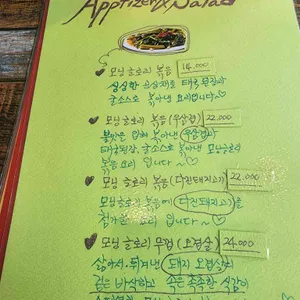 Apptizer & Salad
모닝글로리 볶음 14,000
싱싱한 모닝글로리 볶음 (우삼겹) 22,000
불맛은 입혀 볶아낸 (우삼겹)과
태국된장, 굴소스로 볶아낸 모닝글로리
볶음 요리 입니다~♡
모닝 글로리 볶음 (다진돼지고기) 22,000
모닝글로리 볶음에 (다진돼지고기)를
첨가한 요리 입니다~♡
모닝 글로리 무껍 (오겹살) 24,000
삶아서 튀겨낸 돼지 오겹살의
겉은 바삭하고 속은 촉촉한 식감이